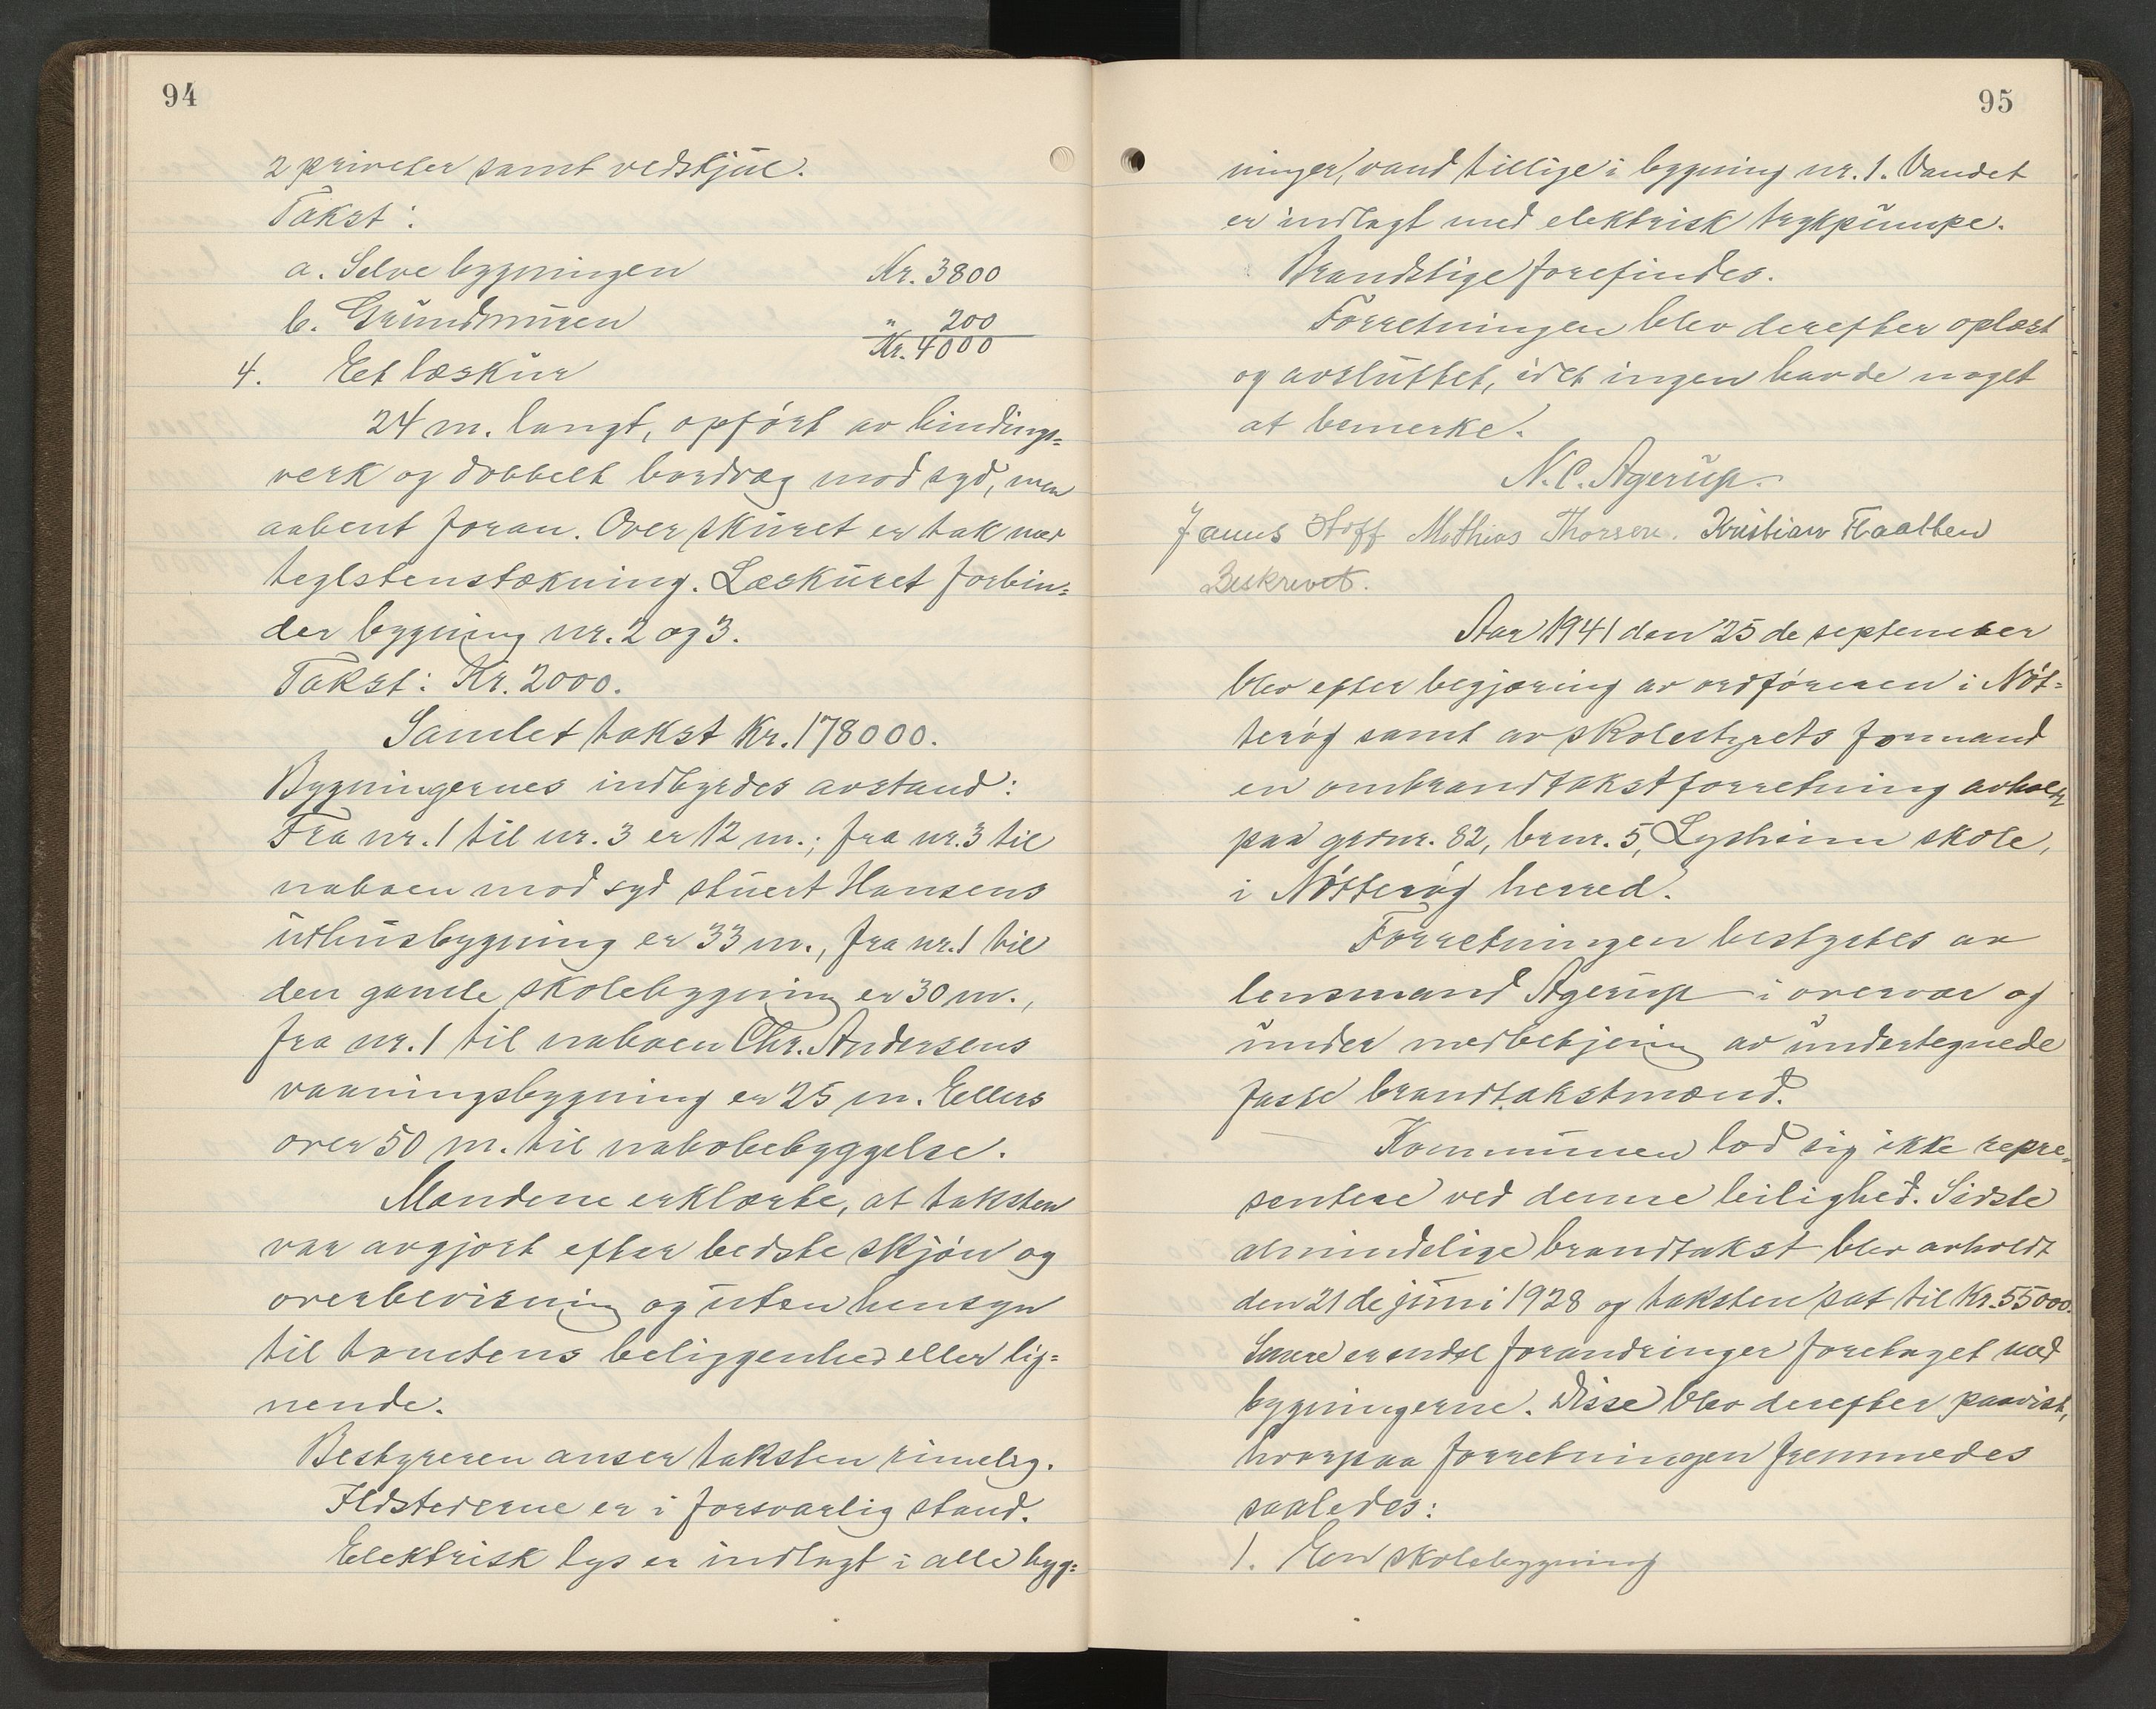 94
2 priveter samt vedskjul.
Takst:
a. Selve bygningen Kr. 3800
b. Grundmuren " 200
Kr. 4000
4. Et læskur
24 m. langt, opført av bindings=
verk og dobbelt bordvæg mod syd, men
aabent foran. Over skuret er tak med
teglstenstækning. Læskuret forbin=
der bygning nr. 2 og 3.
Takst: Kr. 2000.
Samlet takst Kr. 178000.
Bygningernes indbyrdes avstand:
Fra nr. 1 til nr. 3 er 12 m.; fra nr. 3 til
naboen mod syd stuert Hansens
uthusbygning er 33 m., fra nr. 1 til
den gamle skolebygning er 30 m.,
fra nr. 1 til naboen Chr. Andersens
vaaningsbygning er 25 m. Ellers
over 50 m. til nabobebyggelse.
Mændene erklærte, at taksten
var avgjort efter bedste skjøn og
overbevisning og uten hensyn
til tomtens beliggenhed eller lig=
nende.
Bestyreren anser taksten rimelig.
Ildstederne er i forsvarlig stand.
Elektrisk lys er indlagt i alle byg=
95
ninger, vand tillige i bygning nr. 1. Vandet
er indlagt med elektrisk trykpumpe.
Brandstige forefindes.
Forretningen blev derefter oplæst
og avsluttet, idet ingen havde noget
at bemerke.
N. C. Agerup.
Hoff Mathias Thorsen. Kristian Flaatten
Beskrevet.
Aar 1941 den 25 de september
blev efter begjæring av ordføreren i Nøt=
terøy samt av skolestyrets formand
en ombrandtakstforretning avholdt
paa grdnr. 82, brnr. 5, Lysheim skole,
i Nøtterøy herred.
Forretningen bestyrtes av
lensmand Agerup i overvær og
under medbetjening av undertegnede
faste brandtakstmænd.
Kommunen lod sig ikke repre=
sentere ved denne leilighed. Sidste
almindelige brandtakst blev avholdt
den 21 de juni 1928 og taksten sat til Kr. 55000.
Senere er endel forandringer foretaget med
bygningerne. Disse blev derefter paavist,
hvorpaa forretningen fremmedes
saaledes:
1. En skolebygning